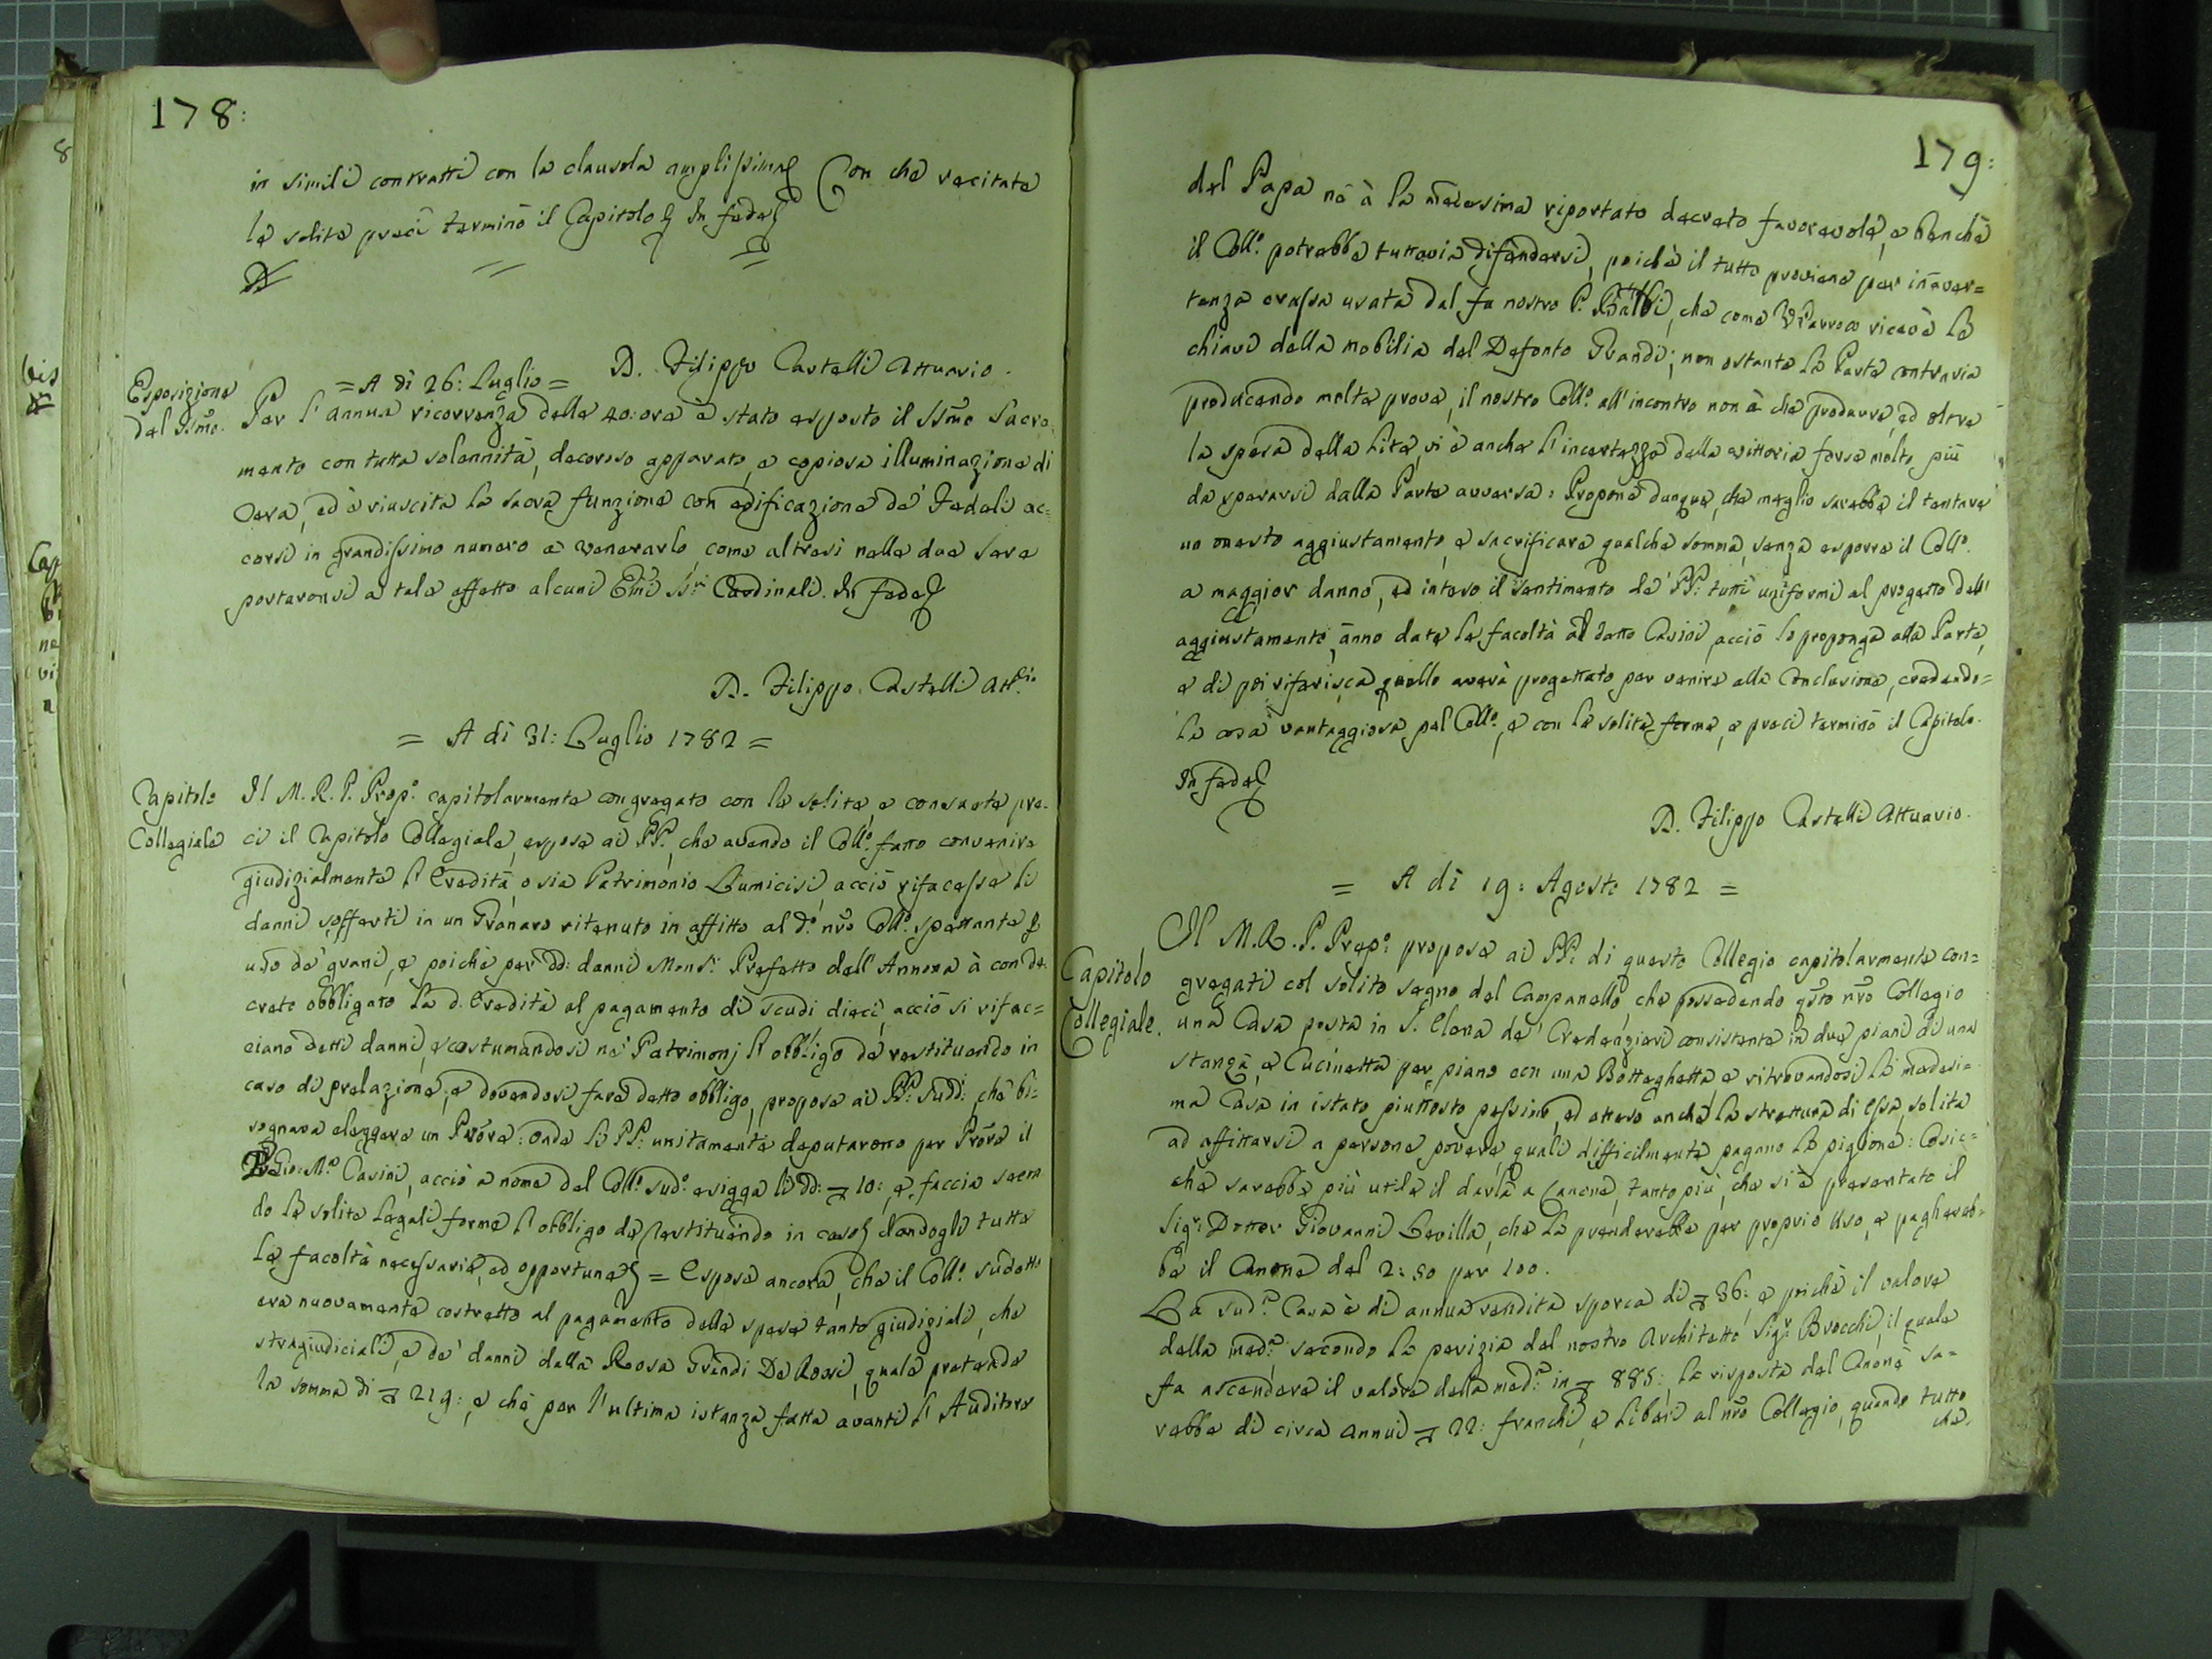 178:
in simili contratti con la clausola amplissima Con che recitate
le solite preci terminò il Capitolo In fede
D. Filippo Castelli Attuario.
= A di 26: Luglio =
Esposizione
del SSmo.
Per l'annua ricorrenza delle 40: ore è stato esposto il SSmo Sacra-
mento con tutta solennità, decoroso apparato, e copiosa illuminazione di
Cera, ed è riuscita la sacra funzione con edificazione de' Fedeli ac=
corsi in grandissimo numero a venerarlo, come altresi nelle due sere
portaronsi a tale effetto alcuni Emi SSri Cardinali. In fede
D. Filippo Castelli Attrio
= A di 31: Luglio 1782 =
Capitolo
Collegiale
Il M. R. P. Prepo. capitolarmente congregato con le solite, e consuete pre-
ci il Capitolo Collegiale, espose ai PP., che avendo il Collo. fatto convenire
giudizialmente l'Eredità, o sia Patrimonio Lumicisi, acciò rifacesse li
danni sofferti in un Granaro ritenuto in affitto al do. nro Collo. spettante
uso de' grani, e poichè per dd: danni Monsr. Prefetto dell'Annona à con de-
creto obbligato la d. Eredità al pagamento di scudi dieci, acciò si rifac=
ciano detti danni, e costumandosi ne' Patrimonj l'obbligo de restituendo in
caso di prelazione, e dovendosi fare detto obbligo, propose ai PP: sudd: che bi=
sognava eleggere un Prõre: onde li PP: unitamente deputarono per Prõre il
P. Gio: Ma. Casini, acciò a nome del Collo. sudo. esigga li dd: 10: e faccia secon
do le solite legali forme l'obbligo de restituendo in caso dandogli tutte
le facoltà necessarie, ed opportune = Espose ancora, che il Collo. sudetto
era nuovamente costretto al pagamento delle spese tanto giudiziali, che
stragiudiciali, e de' danni dalla Rosa Grandi De Rossi, quale pretende
la somma di 219: e che per l'ultima istanza fatta avanti l'Auditore
179:
del Papa nè à la medesima riportato decreto favorevole, e benchè
il Collo. potrebbe tuttavia difendersi, poichè il tutto proviene per inaver=
tenza crassa usata dal fu nostro P. Balbi, che come Parroco ricevè le
chiavi della mobilia del Defonto Grandi; non ostante la Parte contraria
producendo molte prove, il nostro Collo. all'incontro non à che produrre, ed oltre
la spesa della Lite, vi è anche l'incertezza della vittoria forse molto più
da sperarsi dalla Parte avversa: Propone dunque, che meglio sarebbe il tentare
un onesto aggiustamento, e sacrificare qualche somma, senza esporre il Collo.
a maggior danno, ed inteso il sentimento de' PP: tutti uniformi al progetto dell'
aggiustamento, ànno data la facoltà al detto Casini, acciò lo proponga alla Parte,
e di poi riferisca quello averà progettato per venire alla Conclusione, credendo=
la cosa vantaggiosa pel Collo., e con le solite forme, e preci terminò il Capitolo.
In fede
D. Filippo Castelli Attuario.
= A di 19: Agosto 1782 =
Capitolo
Collegiale.
Il M. R. P. Prepo: propose ai PP: di questo Collegio capitolarmente con=
gregati col solito segno del Campanello, che possedendo qsto nro Collegio
una Casa posta in S. Elena de' Credenzieri consistente in due piani di una
stanza, e Cucinetta per piano con una Botteghetta e ritrovandosi la medesi=
ma Casa in istato piuttosto pessimo, ed atteso anche la strettura di essa, solita
ad affittarsi a persone povere, quali difficilmente pagano la pigione: Cosic=
che sarebbe più utile il darla a Canone, tanto più, che si è presentato il
Sigr: Dottor Giovanni Bevilla, che la prenderebbe per proprio uso, e pagherеb=
be il Canone del 2: 50 per 100.
La sudta. Casa è di annua rendita sporca di 36: e poichè il valore
della meda. secondo la perizia del nostro Architetto Sigr. Brocchi, il quale
fa ascendere il valore della meda. in 885: la risposta del Canone sa=
rebbe di circa annui 22: franchi, e liberi al nro Collegio, quando tutto
che.